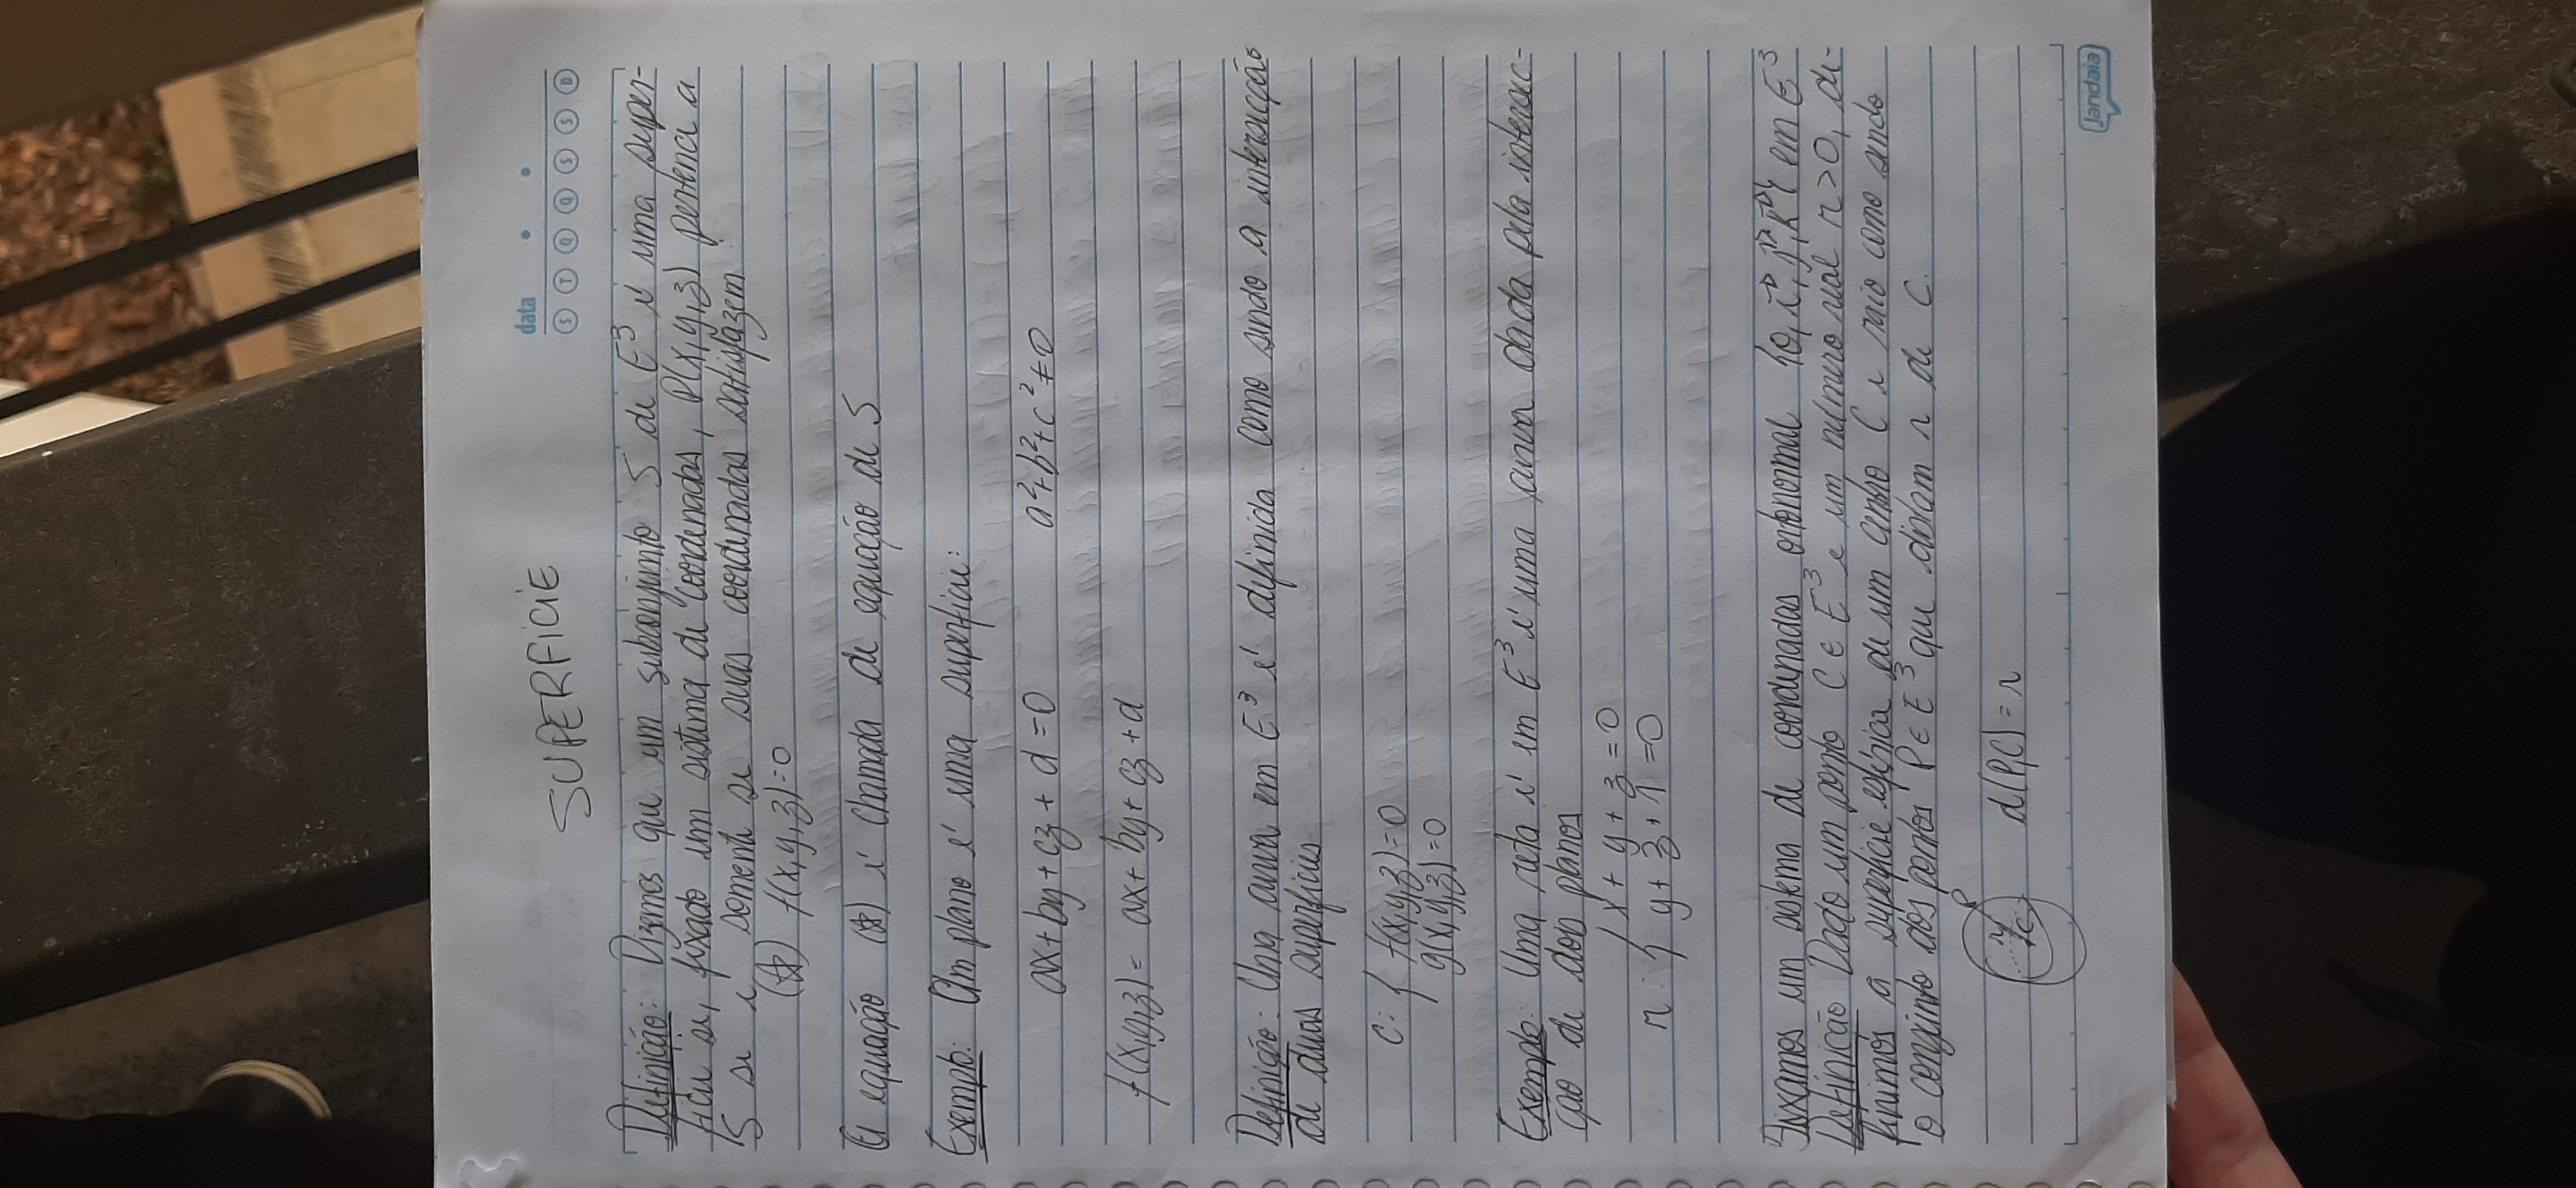 SUPERFICIE
data
S T Q Q S S D
Definição: Dizemos que um subconjunto S de E³ é uma super-
fície se, fixado um sistema de coordenadas, P(x,y,z) pertence a
S se e somente se suas coordenadas satisfazem:
(☆) f(x,y,z)=0
A equação (☆) é chamada de equação de S
Exemplo: Um plano é uma superfície:
ax+by+cz+d=0 a²+b²+c²≠0
f(x,y,z)= ax+by+cz+d
Definição: Uma curva em E³ é definida como sendo a intersecção
de duas superfícies
C: { f(x,y,z)=0
g(x,y,z)=0
Exemplo: Uma reta é em E³ é uma curva dada pela intersec-
ção de dois planos
x+y+z=0
r: { y+z+1=0
Fixamos um sistema de coordenadas ortonormal {0, i⃗, j⃗, k⃗} em E³
Definição Dado um ponto C ∈ E³ e um número real r>0, de-
finimos a superfície esférica de um centro C e raio como sendo
o conjunto dos pontos P ∈ E³ que distam r de C.
P
r
C
d(P,C)=r
Jandaia